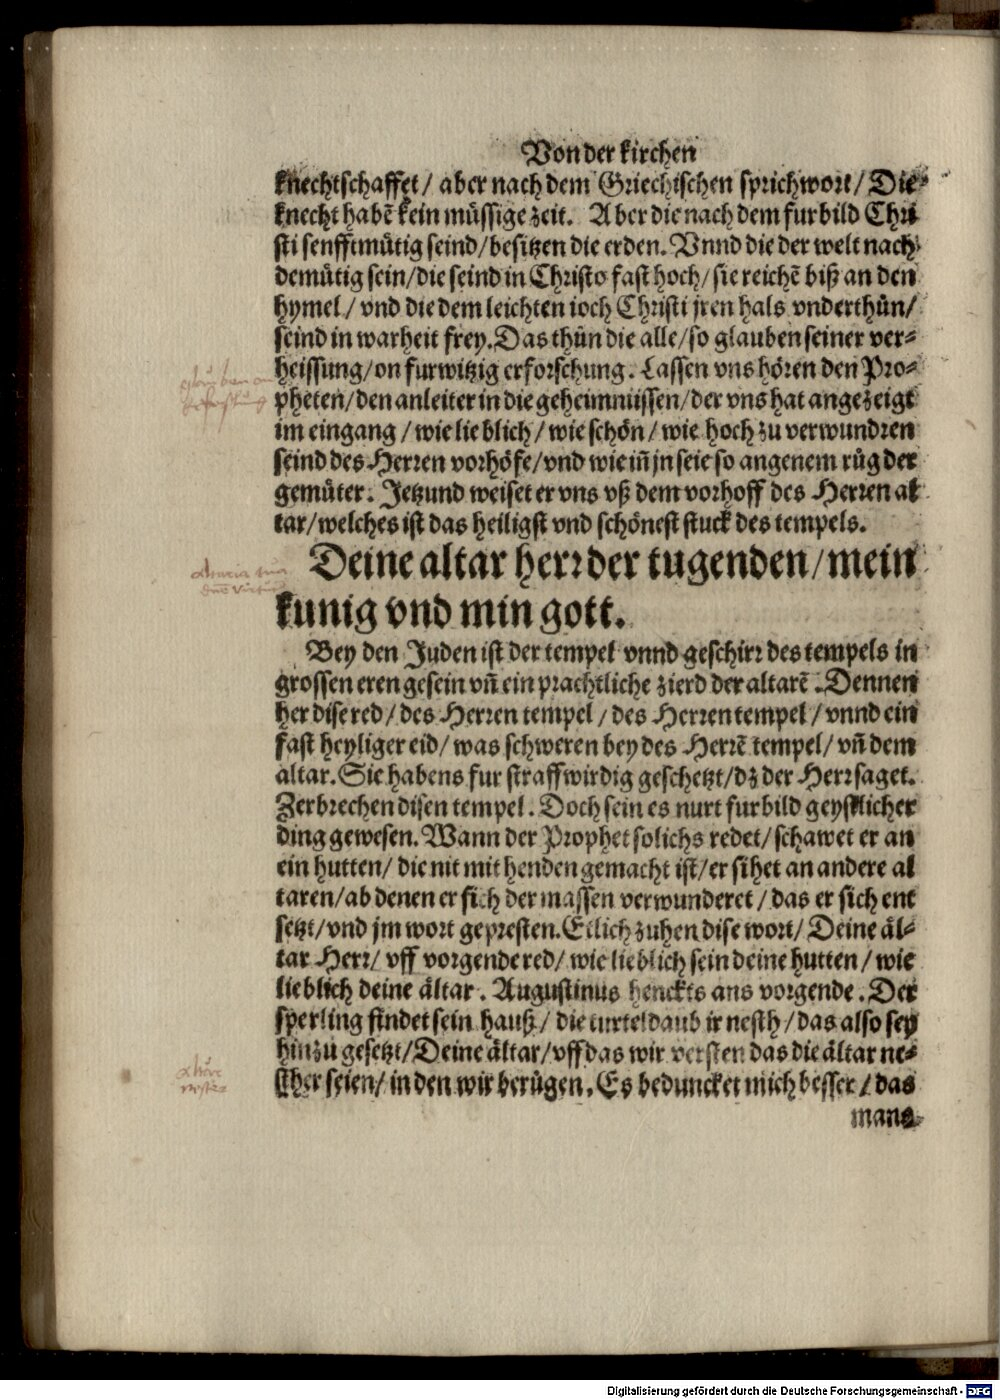 Von der kirchen
knechtschaffet / aber nach dem Griechischen sprichwort / Die
knecht habē kein müssige zeit. Aber die nach dem furbild Chri
sti senfftmütig seind / besitzen die erden. Vnnd die der welt nach
demütig sein / die seind in Christo fast hoch / sie reichē biß an den
hymel / vnd die dem leichten ioch Christi jren hals vnderthůn /
seind in warheit frey. Das thůn die alle / so glauben seiner ver⸗
heissung / on furwitzig erforschung. Lassen vns hören den Pro⸗
pheten / den anleiter in die geheimnüssen / der vns hat angezeigt
im eingang / wie lieblich / wie schön / wie hoch zu verwundren
seind des Herren vorhöfe / vnd wie iñ jn seie so angenem růg der
gemüter. Jetzund weiset er vns vß dem vorhoff des Herren al
tar / welches ist das heiligst vnd schönest stuck des tempels.
Deine altar herr der tugenden / mein
kunig vnd min gott.
Bey den Juden ist der tempel vnnd geschirr des tempels in
grossen eren gesein vñ ein prachtliche zierd der altarē. Dennen
her dise red / des Herren tempel / des Herren tempel / vnnd ein
fast heyliger eid / was schweren bey des Herrē tempel / vñ dem
altar. Sie habens fur straffwirdig geschetzt / dz der Herr saget.
Zerbrechen disen tempel. Doch sein es nurt furbild geystlicher
ding gewesen. Wann der Prophet solichs redet / schawet er an
ein hutten / die nit mit henden gemacht ist / er sihet an andere al
taren / ab denen er sich der massen verwunderet / das er sich ent
setzt / vnd jm wort gepresten. Etlich zuhen dise wort / Deine äl⸗
tar Herr / vff vorgende red / wie lieblich sein deine hutten / wie
lieblich deine ältar. Augustinus henckts ans vorgende. Der
sperling findet sein hauß / die turteldaub ir nesth / das also sey
hinzů gesetzt / Deine ältar / vff das wir versten das die ältar ne⸗
sther seien / in den wir berůgen. Es beduncket mich besser / das
mans
Altaria tua
Digitalisierung gefördert durch die Deutsche Forschungsgemeinschaft - DFG